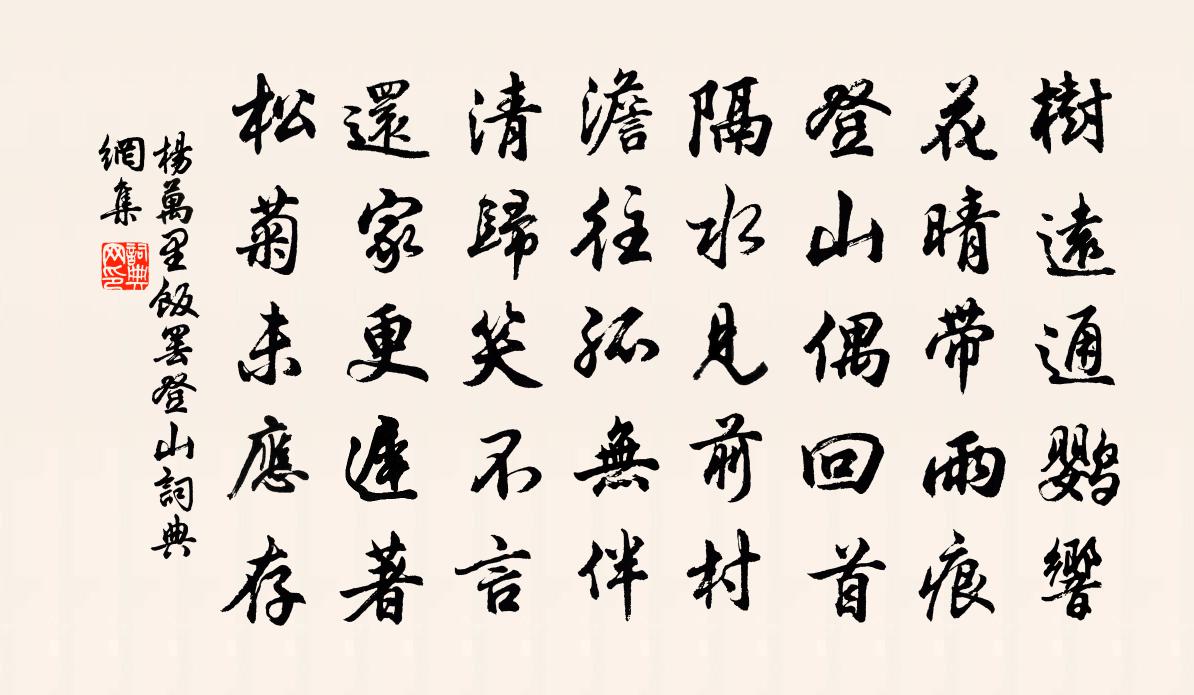 樹遠通鸚響
花晴帶雨痕
登山偶回首
隔水見前村
澹往孤無伴
清歸笑不言
還家更遲著
松菊未應存
楊萬里飯罢登山詞典
網集
詞典
网印